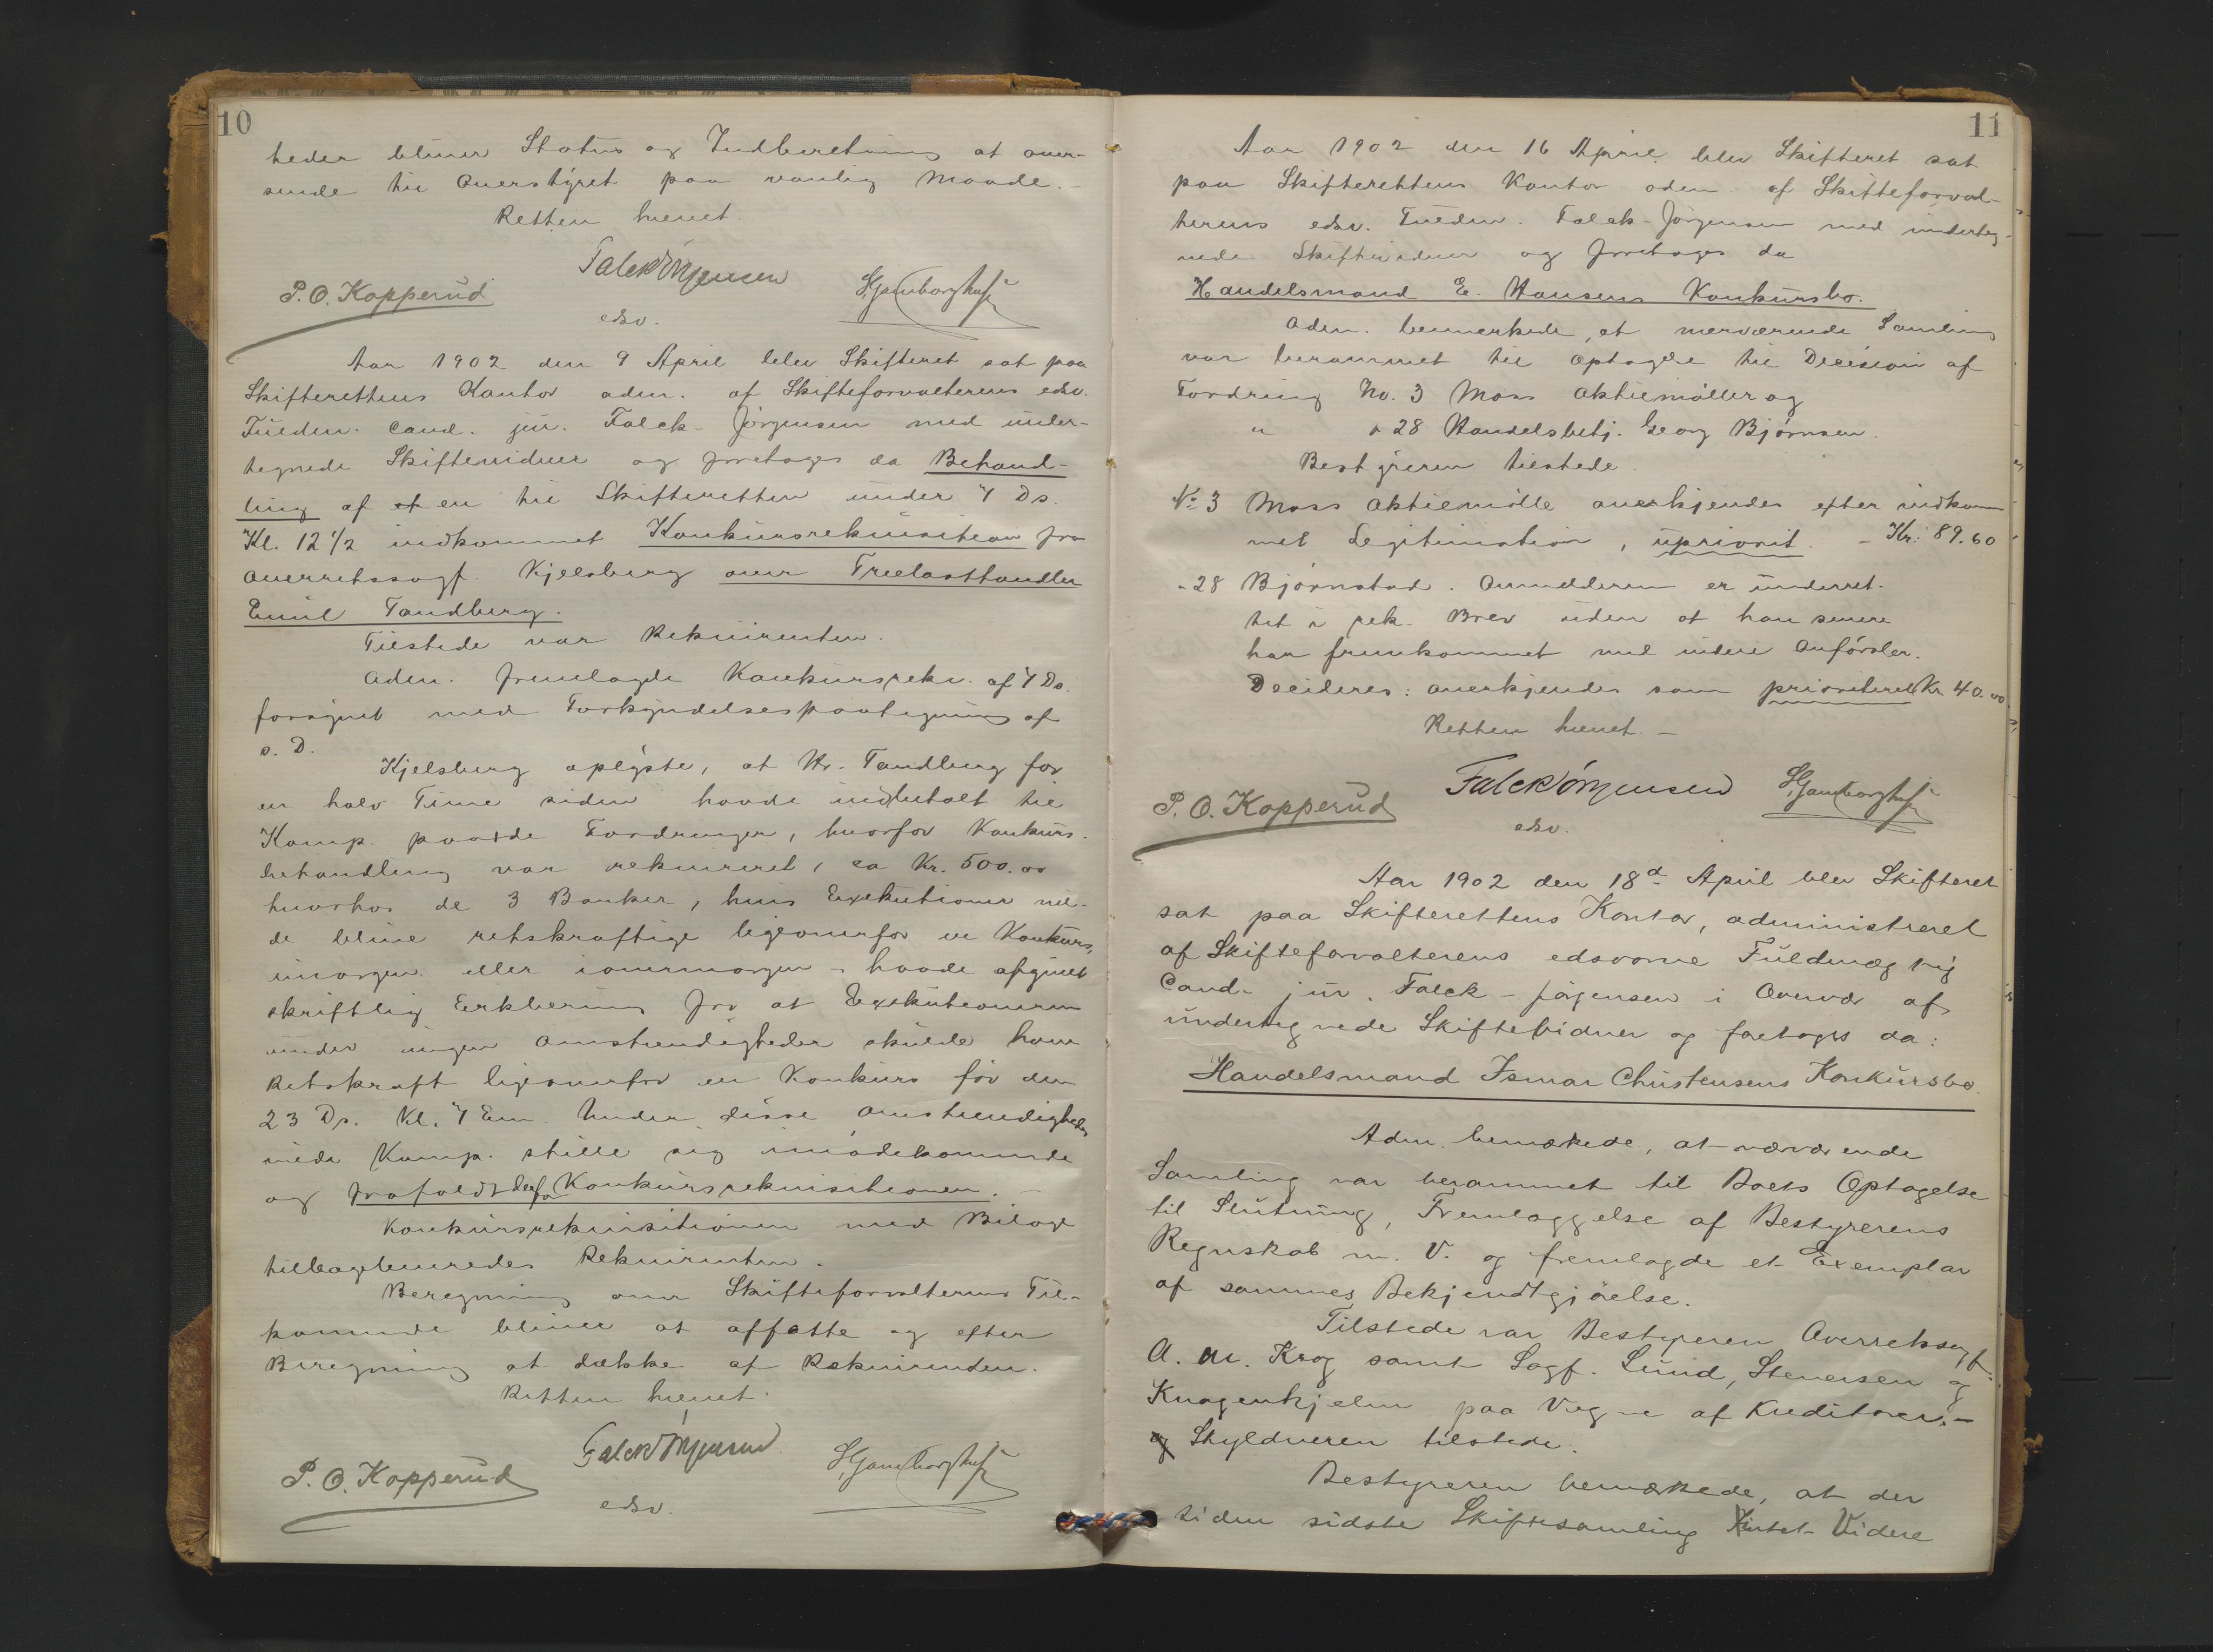 10
heder bliver Status og Indberetning at over-
sende til Overstyret paa vanlig Maade.-
Retten hævet.
FalckJørgensen
P. O. Kopperud
edsv.
Aar 1902 den 9 April blev Skifteret sat paa
Skifterettens Kontor adm. af Skifteforvalterens edsv.
Fuldm. Cand. jur. Falck-Jørgensen med under-
tegnede Skiftevidner og foretoges da Behand-
ling af et en til Skifteretten under 7 Ds.
Kl. 12 1/2 indkommet Konkursrekvisition fra
Overretssagf. Kjelsberg over Trælasthandler
Emil Tandberg.
Tilstede var Rekvirenten.
Adm. fremlagde Konkursrekv. af 7 Ds.
forsynet med Forkyndelsespaategning af
s. D.
Kjelsberg oplyste, at Hr. Tandberg for
en halv Time siden havde indbetalt til
Komp. paa de Fordringer, hvorfor Konkurs-
behandling var rekvireret, ca Kr. 500.00
hvorhos de 3 Banker, hvis Exekutioner vil-
de blive retskraftige ligeoverfor en Konkurs,
imorgen eller iovermorgen - havde afgivet
skriftlig Erklæring for at Exekutionerne
under ingen Omstændigheder skulde have
Retskraft ligeoverfor en Konkurs før den
23 Ds. Kl. 7 Em. Under disse Omstændigheder
vilde Komp. stille sig imødekommende
og frafaldt derfor Konkursrekvisitionen.-
Konkursrekvisitionen med Bilage
tilbageleveredes Rekvirenten.
Beregning over Skifteforvalterens Til-
kommende bliver at affatte og efter
Beregning at dække af Rekvirenden.
Retten hævet.
FalckJørgensen
P. O. Kopperud
edsv.
11
Aar 1902 den 16 April blev Skifteret sat
paa Skifterettens Kontor adm. af Skifteforval-
terens edsv. Fuldm. Falck-Jørgensen med underteg-
nede Skiftevidner og foretoges da
Handelsmand E. Hansens Konkursbo.
Adm. bemerkede, at nærværende Samling
var berammet til Optagelse til Decision af
Fordring No. 3 Moss Aktiemøller og
" " 28 Handelsbetj. Georg Bjørnsen.
Bestyreren tilstede.
No 3 Moss Aktiemølle anerkjendes efter indkom
met Legitimation, upriorit. - Kr. 89.60
" 28 Bjørnstad. Anmelderen er underret-
tet i rek. Brev uden at han senere
har fremkommet med videre Anførsler.
Decideres: anerkjendes som prioriteret Kr 40.00
Retten hævet.-
FalckJørgensen
P. O. Kopperud
edsv.
Aar 1902 den 18d. April blev Skifteret
sat paa Skifterettens Kontor, administreret
af Skifteforvalterens edsvorne Fuldmægtig
Cand. jur. Falck-Jørgensen i Overvær af
undertegnede Skiftevidner og foretoges da:
Handelsmand Ismar Christensens Konkursbo.
Adm. bemærkede, at nærværende
Samling var berammet til Boets Optagelse
til Slutning, Fremlæggelse af Bestyrerens
Regnskab m. V. og fremlagde et Exemplar
af sammes Bekjendtgjørelse.
Tilstede var Bestyreren Overretssagf.
A. M. Krog samt Sagf. Lund, Stenersen og
Knagenhjelm paa Vegne af Kreditorer.-
og Skyldneren tilstede.
Bestyreren bemærkede, at der
siden sidste Skiftesamling Intet Videre